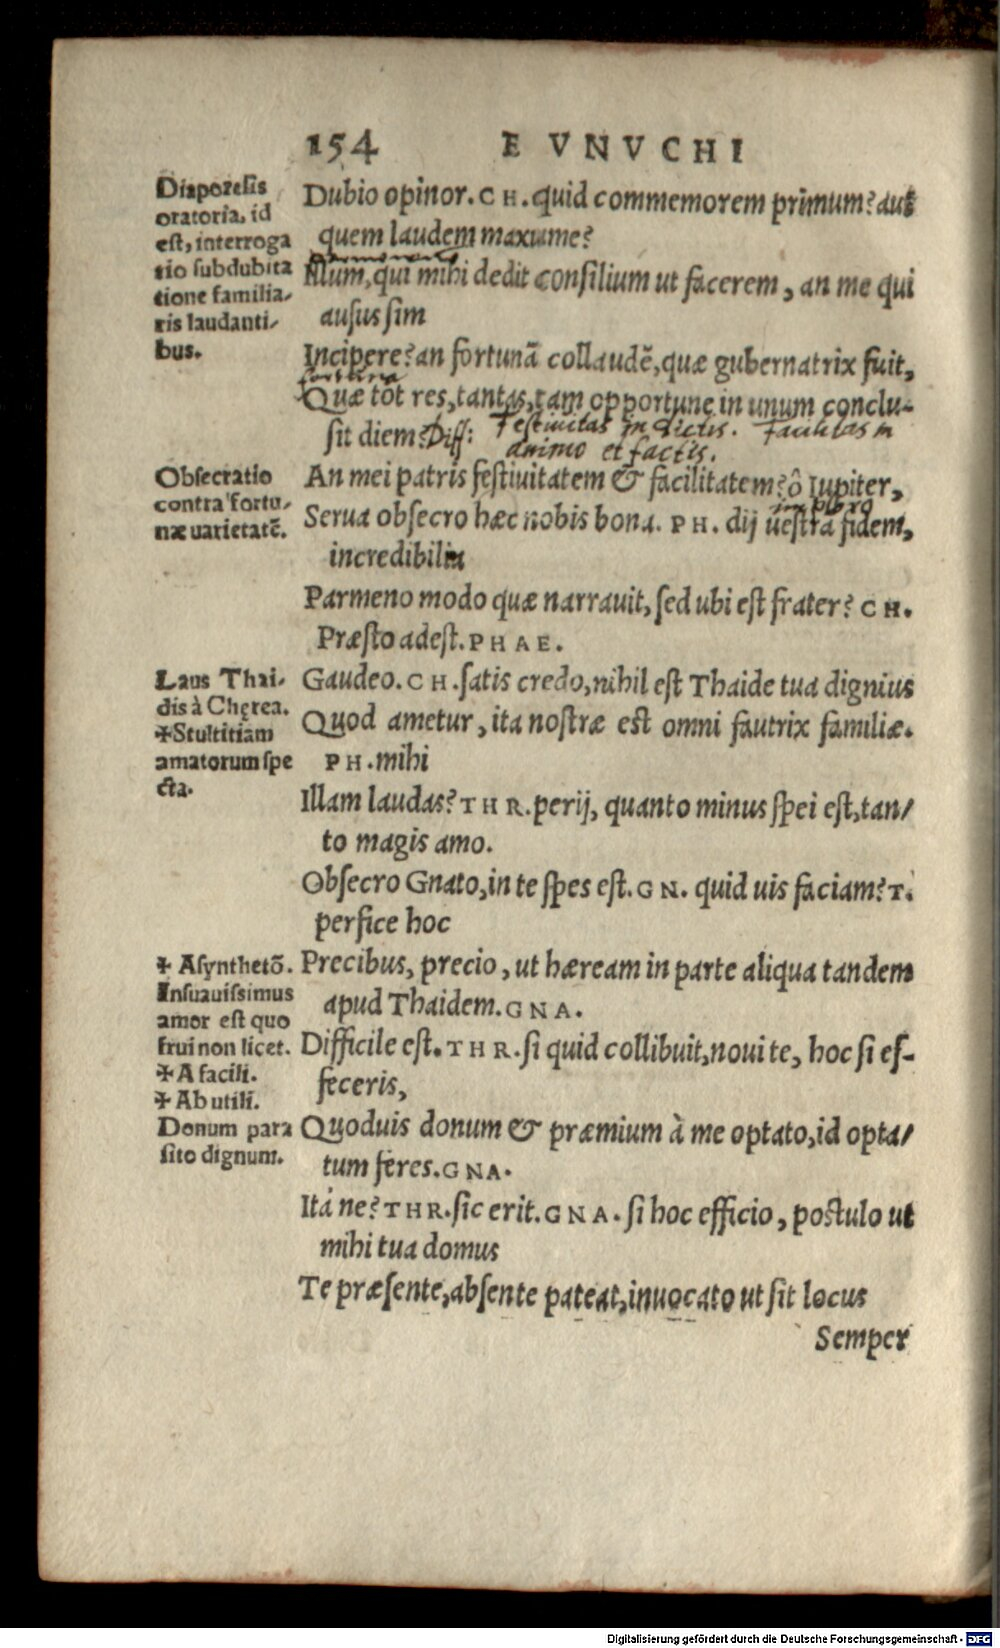 154 EVNVCHI
Diaporesis
oratoria, id
est, interroga
tio subdubita
tione familia-
ris laudanti-
bus.
Dubio opinor. CH. quid commemorem primum? aut
quem laudem maxume?
Parmeno
Illum, qui mihi dedit consilium ut facerem, an me qui
ausus sim
Incipere? an fortunā collaudē, quæ gubernatrix fuit,
fortuna
Quæ tot res, tantas, tam opportune in unum conclu-
sit diem? Diff: Festiuitas in dictis. Facilitas in
animo et factis.
Obsecratio
contra fortu-
næ uarietatē.
An mei patris festiuitatem & facilitatem? ô Iupiter,
imploro
Serua obsecro hæc nobis bona. PH. dij uestra fidem,
incredibilia
Parmeno modo quæ narrauit, sed ubi est frater? CH.
Præsto adest. PHAE.
Laus Thai-
dis à Chęrea.
✠Stultitiam
amatorum spe
cta.
Gaudeo. CH. satis credo, nihil est Thaide tua dignius
Quod ametur, ita nostræ est omni fautrix familiæ.
PH. mihi
Illam laudas? THR. perij, quanto minus spei est, tan-
to magis amo.
Obsecro Gnato, in te spes est. GN. quid uis faciam? T.
perfice hoc
✠ Asynthetō.
Insuauissimus
amor est quo
frui non licet.
✠ A facili.
✠ Ab utili.
Donum para
sito dignum.
Precibus, precio, ut hæream in parte aliqua tandem
apud Thaidem. GNA.
Difficile est. THR. si quid collibuit, noui te, hoc si ef-
feceris,
Quoduis donum & præmium à me optato, id opta-
tum feres. GNA.
Itá ne? THR. sic erit. GNA. si hoc efficio, postulo ut
mihi tua domus
Te præsente, absente pateat, inuocato ut sit locus
Semper
Digitalisierung gefördert durch die Deutsche Forschungsgemeinschaft - DFG